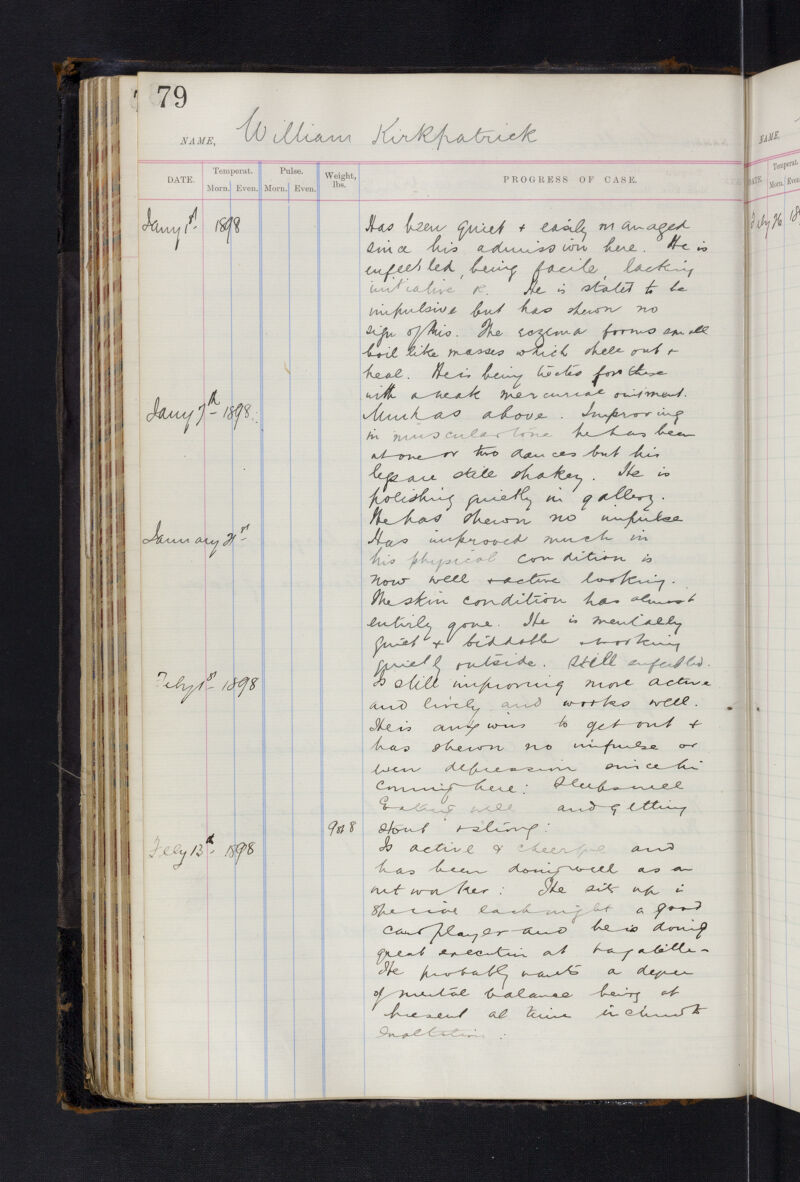 79
NAME, William Kirkpatrick
DATE. Temperat. Pulse. Weight, lbs. PROGRESS OF CASE.
Morn. Even. Morn. Even.
Jany 1st 1898 Has been quiet & easily managed
since his admission here. He is
enfeebled, being facile, lacking
initiative &. He is stated to be
impulsive but has shewn no
sign of this. The eczema forms small
boil like masses which shell out &
heal. He is being treated for these
with a weak mercurial ointment.
Jany 7th 1898. Much as above. Improving
in muscular tone he has been
at one or two dances but his
legs are still shakey. He is
polishing quietly in gallery.
He has shewn no impulse
January 21st Has improved much in
his physical condition is
now well & active looking.
The skin condition has almost
entirly gone. He is mentally
quiet & biddable & working
quietly outside. Still enfeebled.
Feby 1st 1898 Is still improving more active
and lively and works well.
He is anxious to get out &
has shewn no impulse or
even depression since his
coming here: Sleeps well
Eating well and getting
9st 8 stout & strong:
Feby 13th 1898 Is active & cheerful and
has been doing well as an
out worker: He sits up in
each night a good
card player and he is doing
great execution at bagatelle -
He probably wants a degree
of mental balance being at
present at time inclined to
Exaltation:
NAME.
DATE. Temperat.
Morn. Even.
Feby 26 189